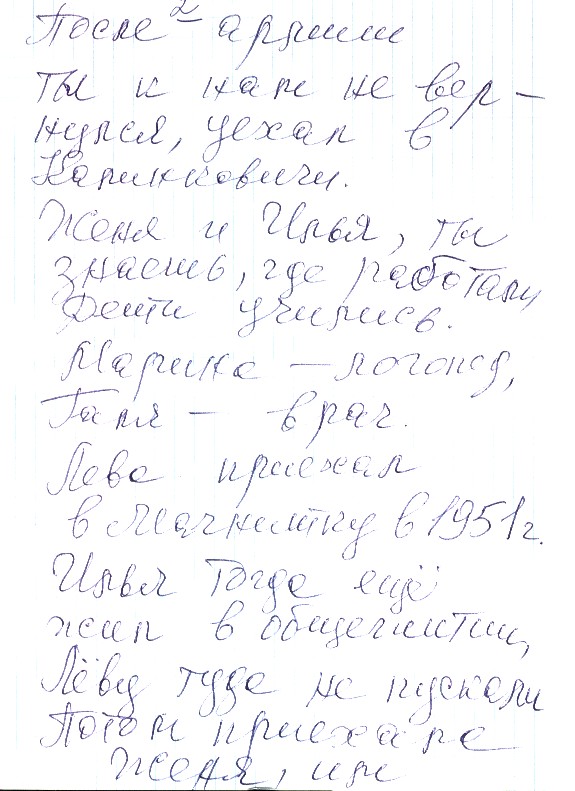 2
После армии
ты к нам не вер-
нулся, уехал в
Калинковичи.
Женя и Илья, ты
знаешь, где работали
Дети учились.
Марина – логопед,
Галя – врач.
Лёва приехал
в Магнитку в 1951г.
Илья тогда ещё
жил в общежитии,
Лёву туда не пускали
Потом приехала
Женя, им